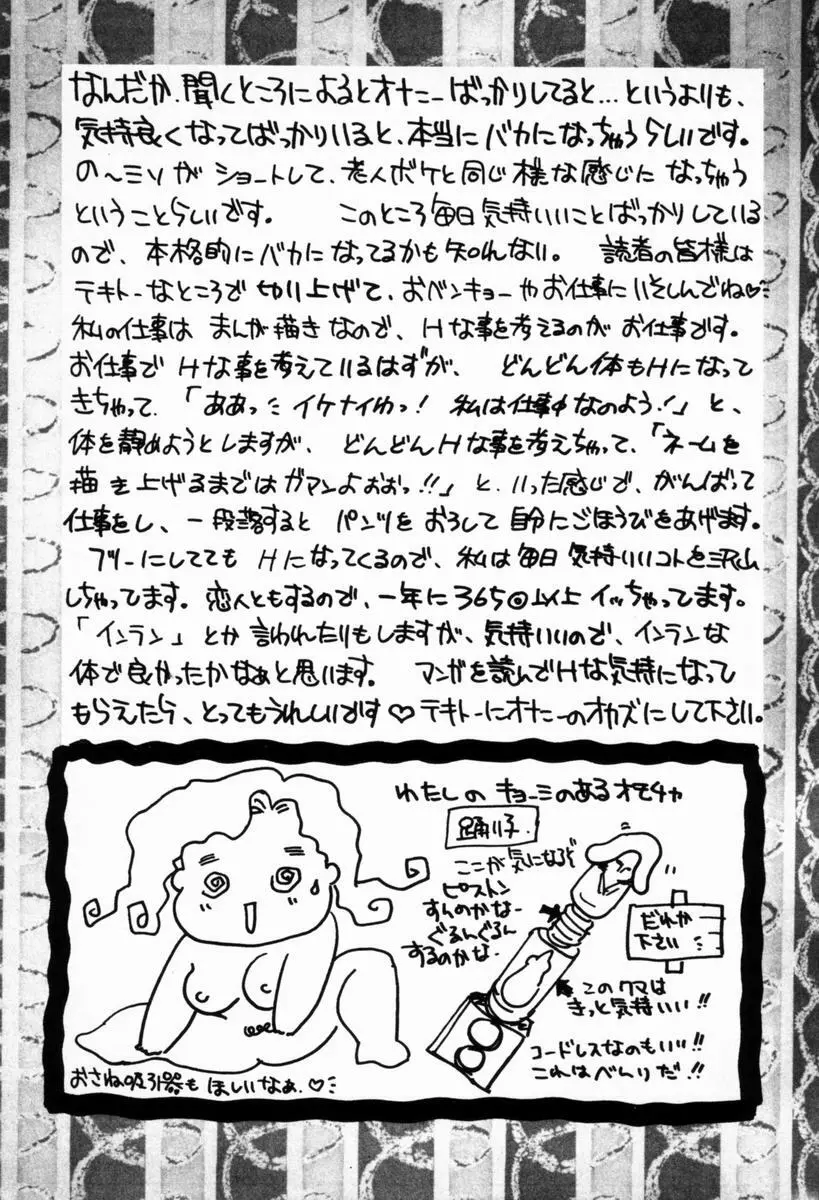 なんだか、聞くところによるとオナニーばっかりしてると…というよりも、
気持良くなってばっかりいると、本当にバカになっちゃうらしいです。
の〜ミソがショートして、老人ボケと同じ様な感じになっちゃう
ということらしいです。 このところ毎日気持いいことばっかりしている
ので、本格的にバカになってるかも知れない。 読者の皆様は
テキトーなところで切り上げて、おベンキョーやお仕事にいそしんでね♡
私の仕事はまんが描きなので、Hな事を考えるのがお仕事です。
お仕事でHな事を考えているはずが、どんどん体もHになって
きちゃって、「ああっイケナイわっ!私は仕事中なのよう!」と、
体を静めようとしますが、どんどんHな事を考えちゃって、「ネームを
描き上げるまではガマンよおおっ!!」と、いった感じで、がんばって
仕事をし、一段落するとパンツをおろして自分にごほうびをあげます。
フツーにしててもHになってくるので、私は毎日気持いいコトを沢山
しちゃってます。恋人ともするので、一年に365回以上イッちゃってます。
「インラン」とか言われたりもしますが、気持いいので、インランな
体で良かったかなぁと思います。 マンガを読んでHな気持になって
もらえたら、とってもうれしいです♡テキトーにオナニーのオカズにして下さい。
わたしのキョーミのあるオモチャ
踊り子
ここが気になるぞ
ピストン
すんのかなー
ぐるんぐるん
するのかな-
だれか
下さい
このクマは
きっと気持いい!!
コードレスなのもいい!!
これはべんりだ!!
おさね吸引器もほしいなぁ.♡